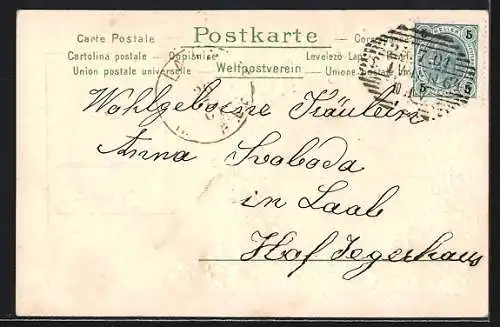 Carte Postale Postkarte
Cartolina postale Levelező-Lap
Union postale universelle Weltpostverein Unione postale
5 5
5 5
Wohlgeborene Fräulein
Anna Svoboda
in Laab
Hof Jegerhaus